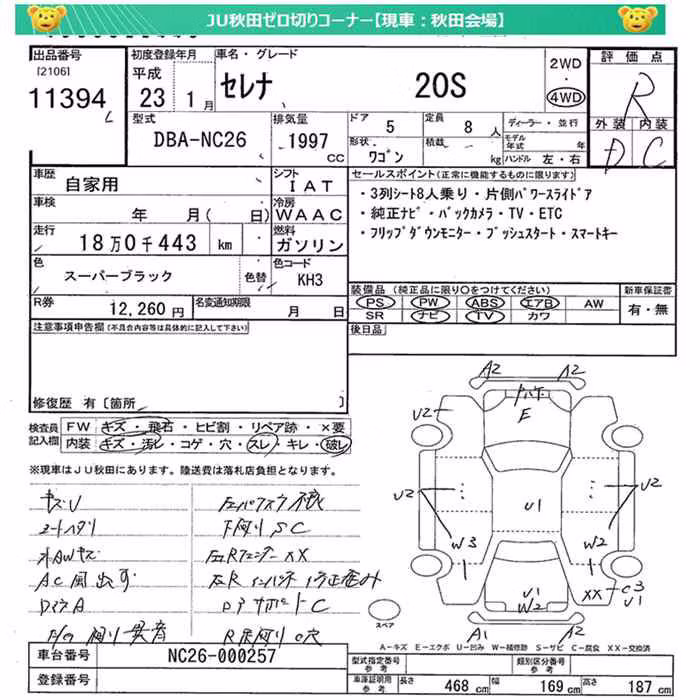 JU秋田ゼロ切りコーナー【現車：秋田会場】
出品番号
[2106]
11394
初度登録年月
平成
23 1月
車名・グレード
セレナ 20S
2WD
・
4WD
評価点
R
外装 内装
D C
型式
DBA-NC26
排気量
1997
CC
ドア
5
定員
8 人
形状
ワゴン
積載
kg
ディーラー・並行
モデル年式 年
ハンドル 左・右
車歴
自家用
シフト
IAT
車検
年 月( 日)
冷房
WAAC
走行
18万0千443 km
燃料
ガソリン
色
スーパーブラック
色替
色コード
KH3
R券
12,260円
名変通知期限
月 日
セールスポイント(正常に機能するものに限ります)
・3列シート8人乗り・片側パワースライドドア
・純正ナビ・バックカメラ・TV・ETC
・フリップダウンモニター・プッシュスタート・スマートキー
装備品 (純正品に限り○をつけてください)
PS PW ABS エアB AW
SR ナビ TV カワ
新車保証書
有・無
後日品
注意事項申告欄(不具合内容等は具体的に記入して下さい)
修復歴 有 [箇所 ]
検査員記入欄
FW キズ・飛石・ヒビ割・リペア跡・×要
内装 キズ・汚レ・コゲ・穴・スレ・キレ・破レ
※現車はJU秋田にあります。陸送費は落札店負担となります。
キズU
シートヘタリ
下廻りSC
外AWキズ
左Rフェンダー XX
A2 A2
E
U2
U2 U1 U2
W3 W2
U1
W2
XX C3
U1
A1 A2
スペア
A-キズ E-エクボ U-凹み W-補修跡 S-サビ C-腐食 XX-交換済
車台番号
NC26-000257
登録番号
型式指定番号
参考
類別区分番号
参考
車庫証明用
参考
長さ 468 cm 幅 169 cm 高さ 187 cm